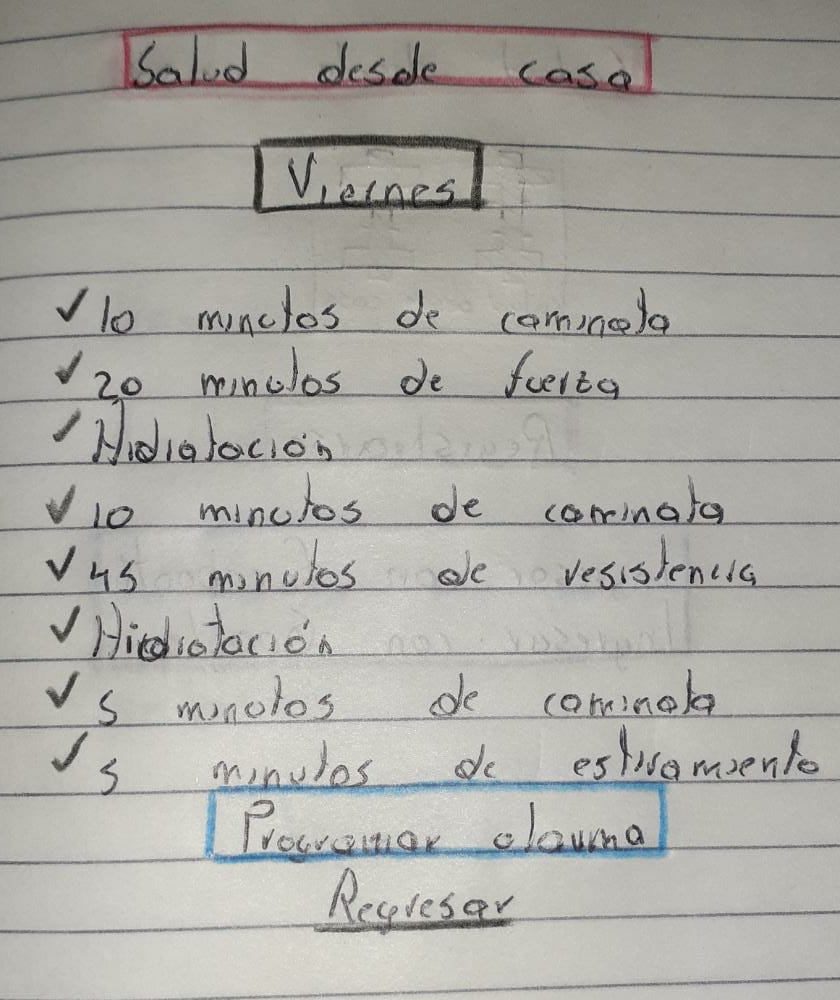 Salud desde casa
Viernes
✓ 10 minutos de caminata
✓ 20 minutos de fuerza
✓ Hidratación
✓ 10 minutos de caminata
✓ 45 minutos de resistencia
✓ Hidratación
✓ 5 minutos de caminata
✓ 5 minutos de estiramiento
Programar alarma
Regresar